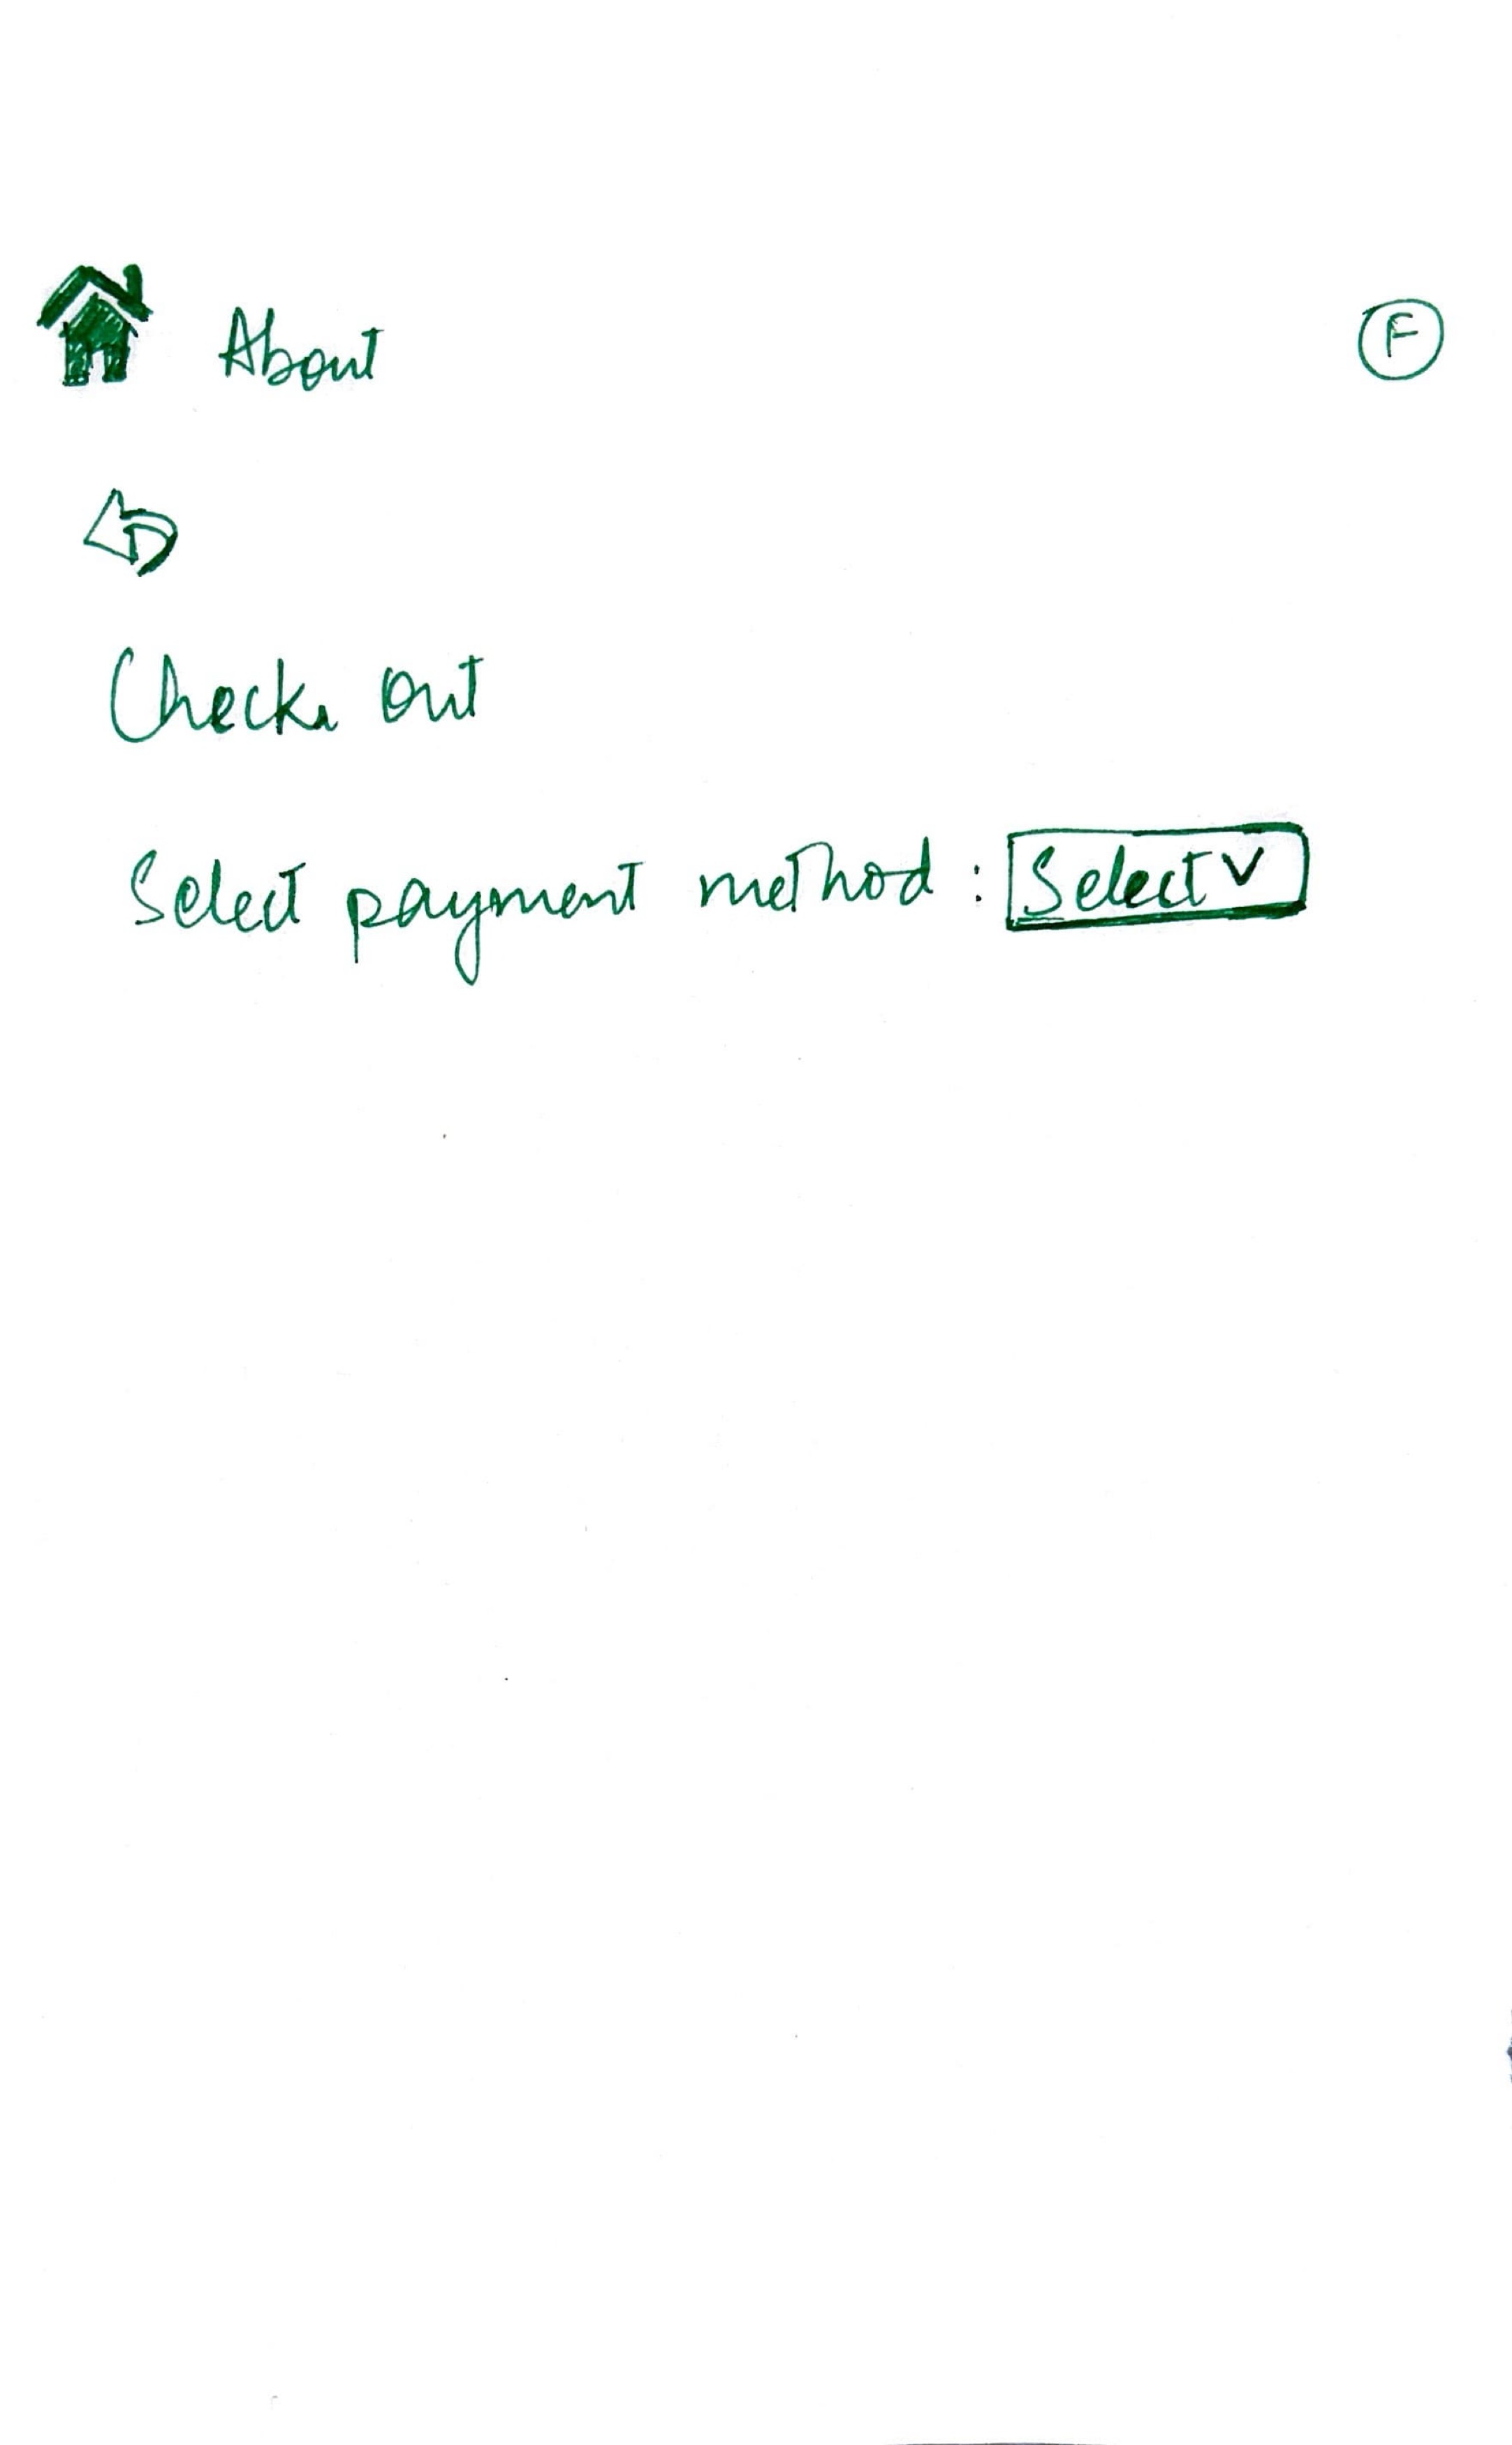 About F
Check out
Select payment method : Select v